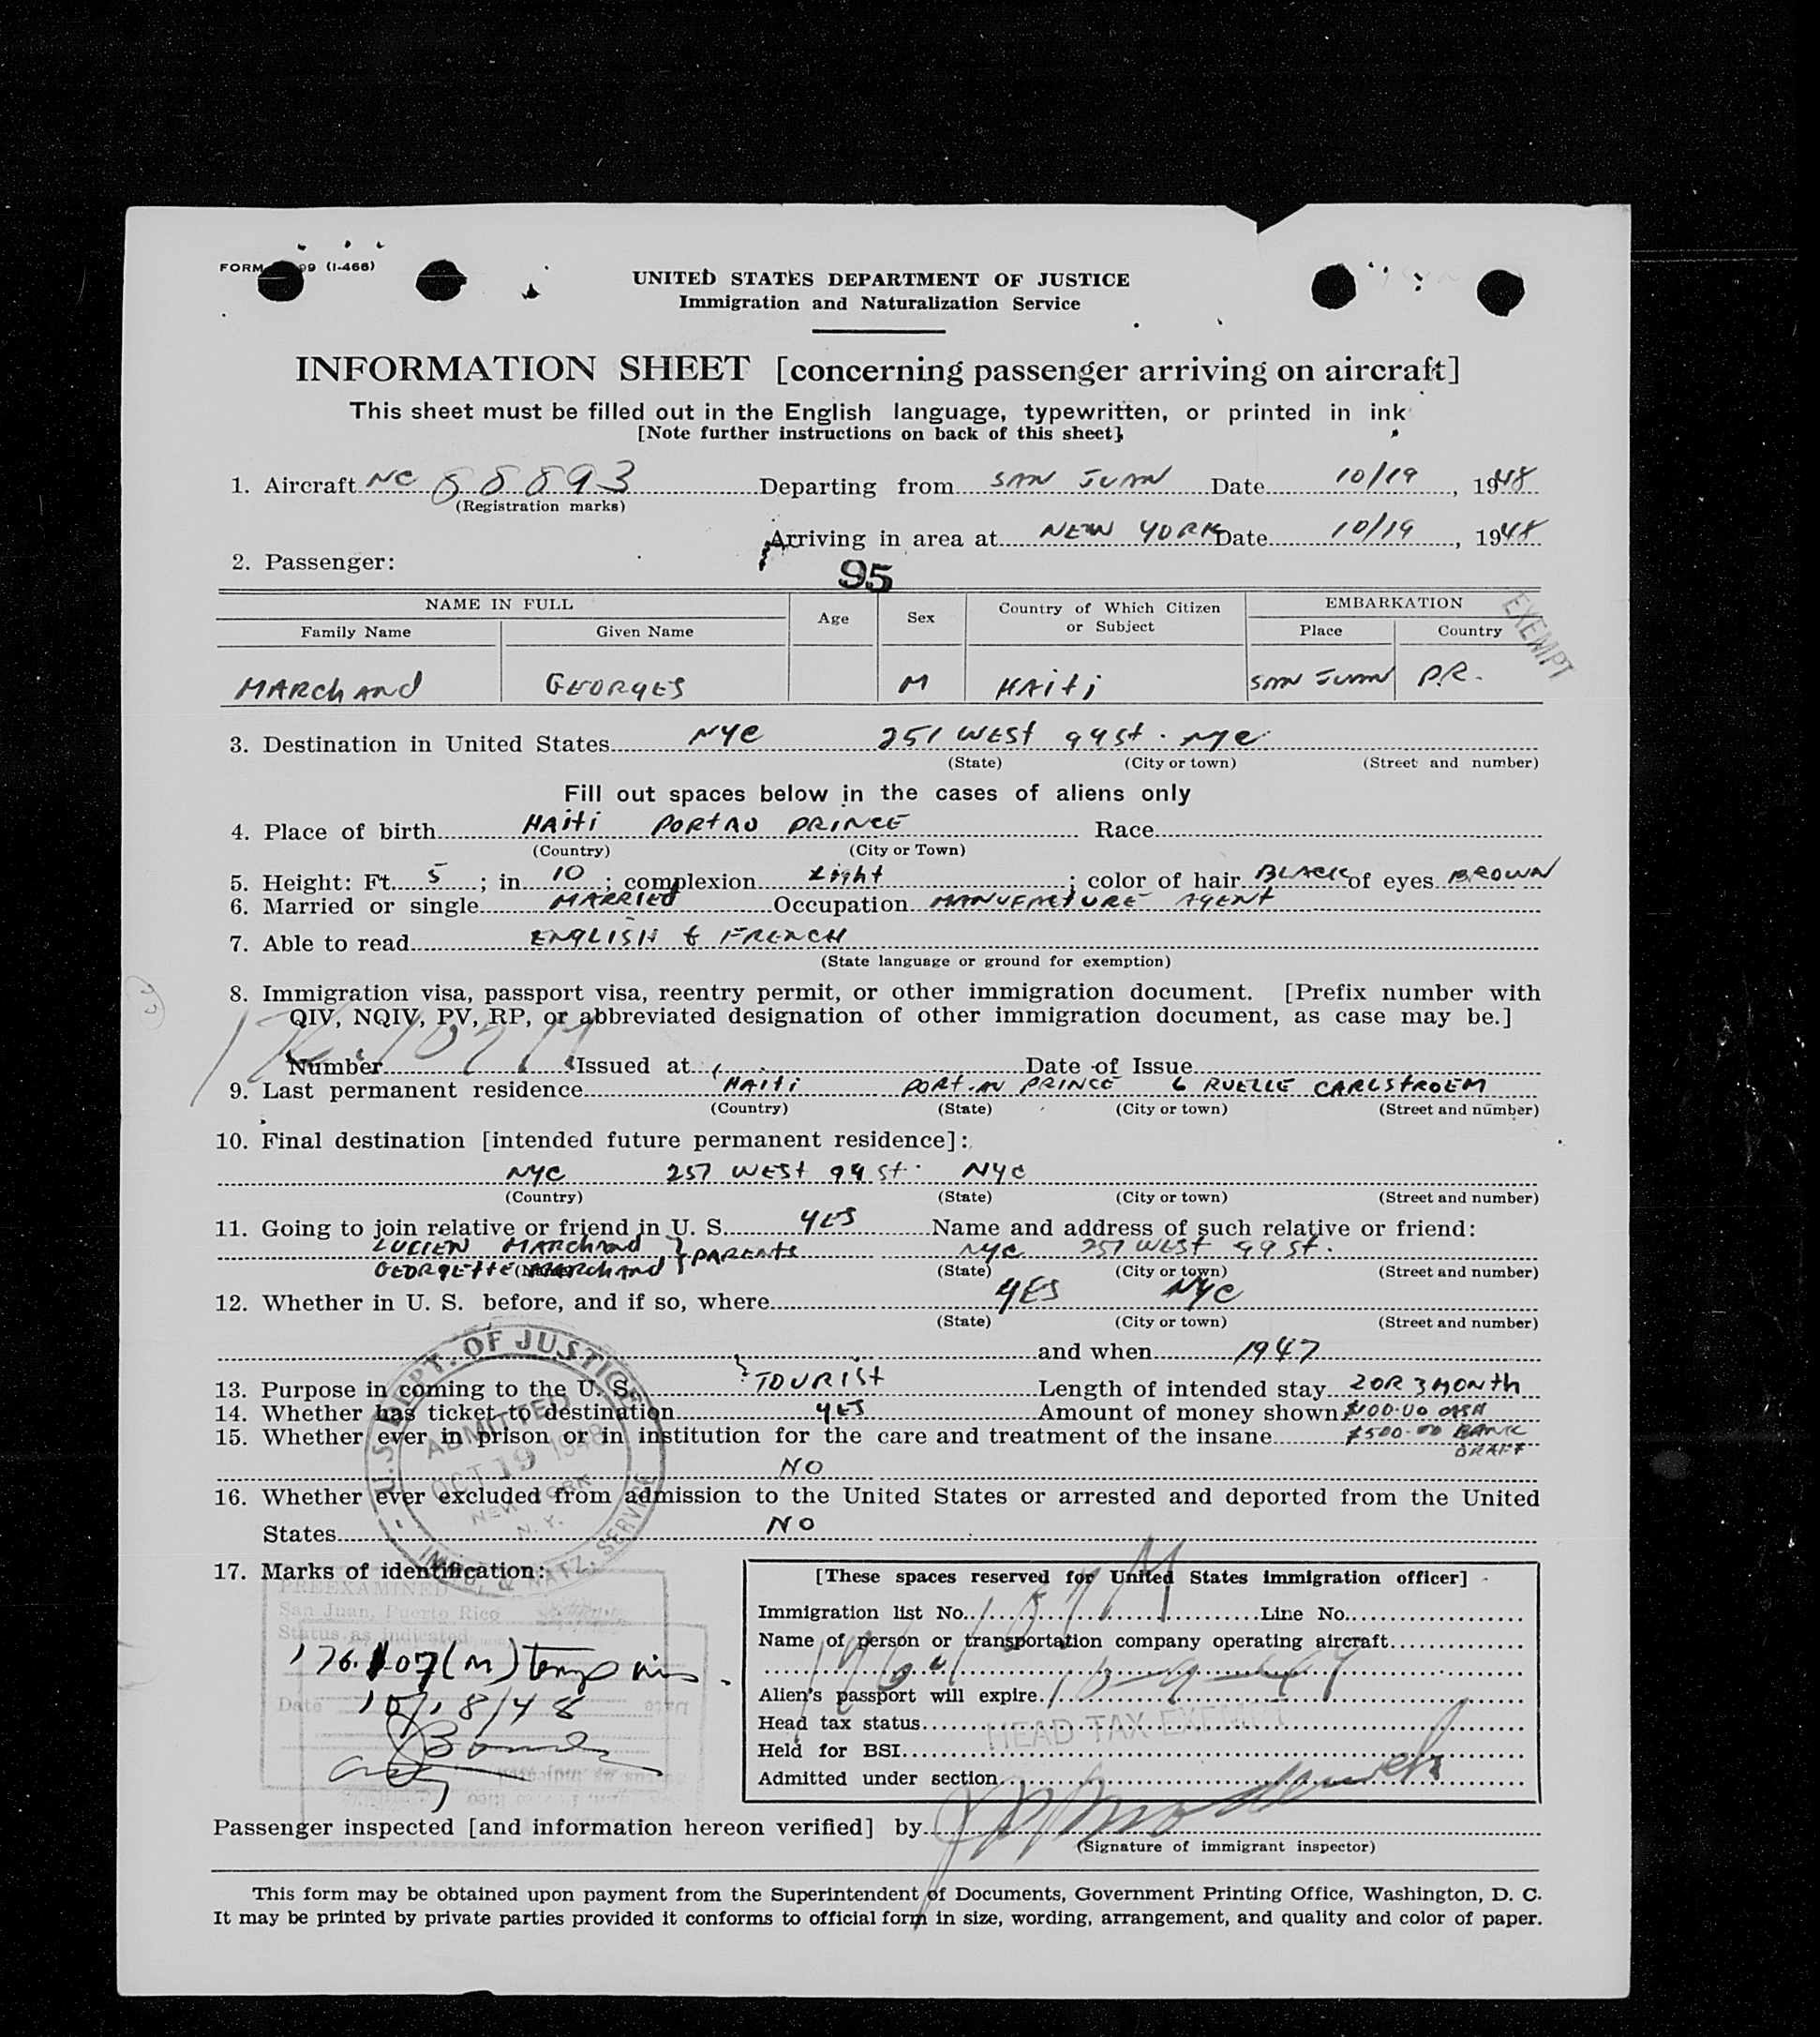 FORM 99 (I-466)
UNITED STATES DEPARTMENT OF JUSTICE
Immigration and Naturalization Service
INFORMATION SHEET [concerning passenger arriving on aircraft]
This sheet must be filled out in the English language, typewritten, or printed in ink
[Note further instructions on back of this sheet]
1. Aircraft NC 88893 Departing from SAN JUAN Date 10/19, 1948
(Registration marks)
Arriving in area at NEW YORK Date 10/19, 1948
2. Passenger:
95
NAME IN FULL Age Sex Country of Which Citizen or Subject EMBARKATION
Family Name Given Name Place Country
EXEMPT
MARCHAND GEORGES M HAITI SAN JUAN P.R.
3. Destination in United States NYC 251 WEST 99 St. NYC
(State) (City or town) (Street and number)
Fill out spaces below in the cases of aliens only
4. Place of birth HAITI PORT AU PRINCE Race
(Country) (City or Town)
5. Height: Ft. 5; in 10; complexion Light; color of hair BLACK of eyes BROWN
6. Married or single MARRIED Occupation MANUFACTURE AGENT
7. Able to read ENGLISH & FRENCH
(State language or ground for exemption)
8. Immigration visa, passport visa, reentry permit, or other immigration document. [Prefix number with
QIV, NQIV, PV, RP, or abbreviated designation of other immigration document, as case may be.]
Number Issued at Date of Issue
9. Last permanent residence HAITI PORT-AU PRINCE 6 RUELLE CARLSTROEM
(Country) (State) (City or town) (Street and number)
10. Final destination [intended future permanent residence]:
NYC 257 WEST 99 St. NYC
(Country) (State) (City or town) (Street and number)
11. Going to join relative or friend in U. S. YES Name and address of such relative or friend:
LUCIEN MARCHAND } PARENTS NYC 257 WEST 99 St.
GEORGETTE MARCHAND
(State) (City or town) (Street and number)
12. Whether in U. S. before, and if so, where YES NYC
(State) (City or town) (Street and number)
and when 1947
13. Purpose in coming to the U. S. TOURIST Length of intended stay 2 OR 3 MONTH
14. Whether has ticket to destination YES Amount of money shown $100.00 CASH
15. Whether ever in prison or in institution for the care and treatment of the insane $500.00 BANK
DRAFT
NO
16. Whether ever excluded from admission to the United States or arrested and deported from the United
States NO
U.S. DEPT. OF JUSTICE
ADMITTED
OCT 19 1948
NEW YORK
N. Y.
IMMIG. & NATZ. SERVICE
17. Marks of identification:
PREEXAMINED
San Juan, Puerto Rico
Status as indicated
176.107(M) Temp
Date 10/18/48
[These spaces reserved for United States immigration officer]
Immigration list No. Line No.
Name of person or transportation company operating aircraft
Alien's passport will expire
Head tax status HEAD TAX EXEMPT
Held for BSI
Admitted under section
Passenger inspected [and information hereon verified] by
(Signature of immigrant inspector)
This form may be obtained upon payment from the Superintendent of Documents, Government Printing Office, Washington, D. C.
It may be printed by private parties provided it conforms to official form in size, wording, arrangement, and quality and color of paper.